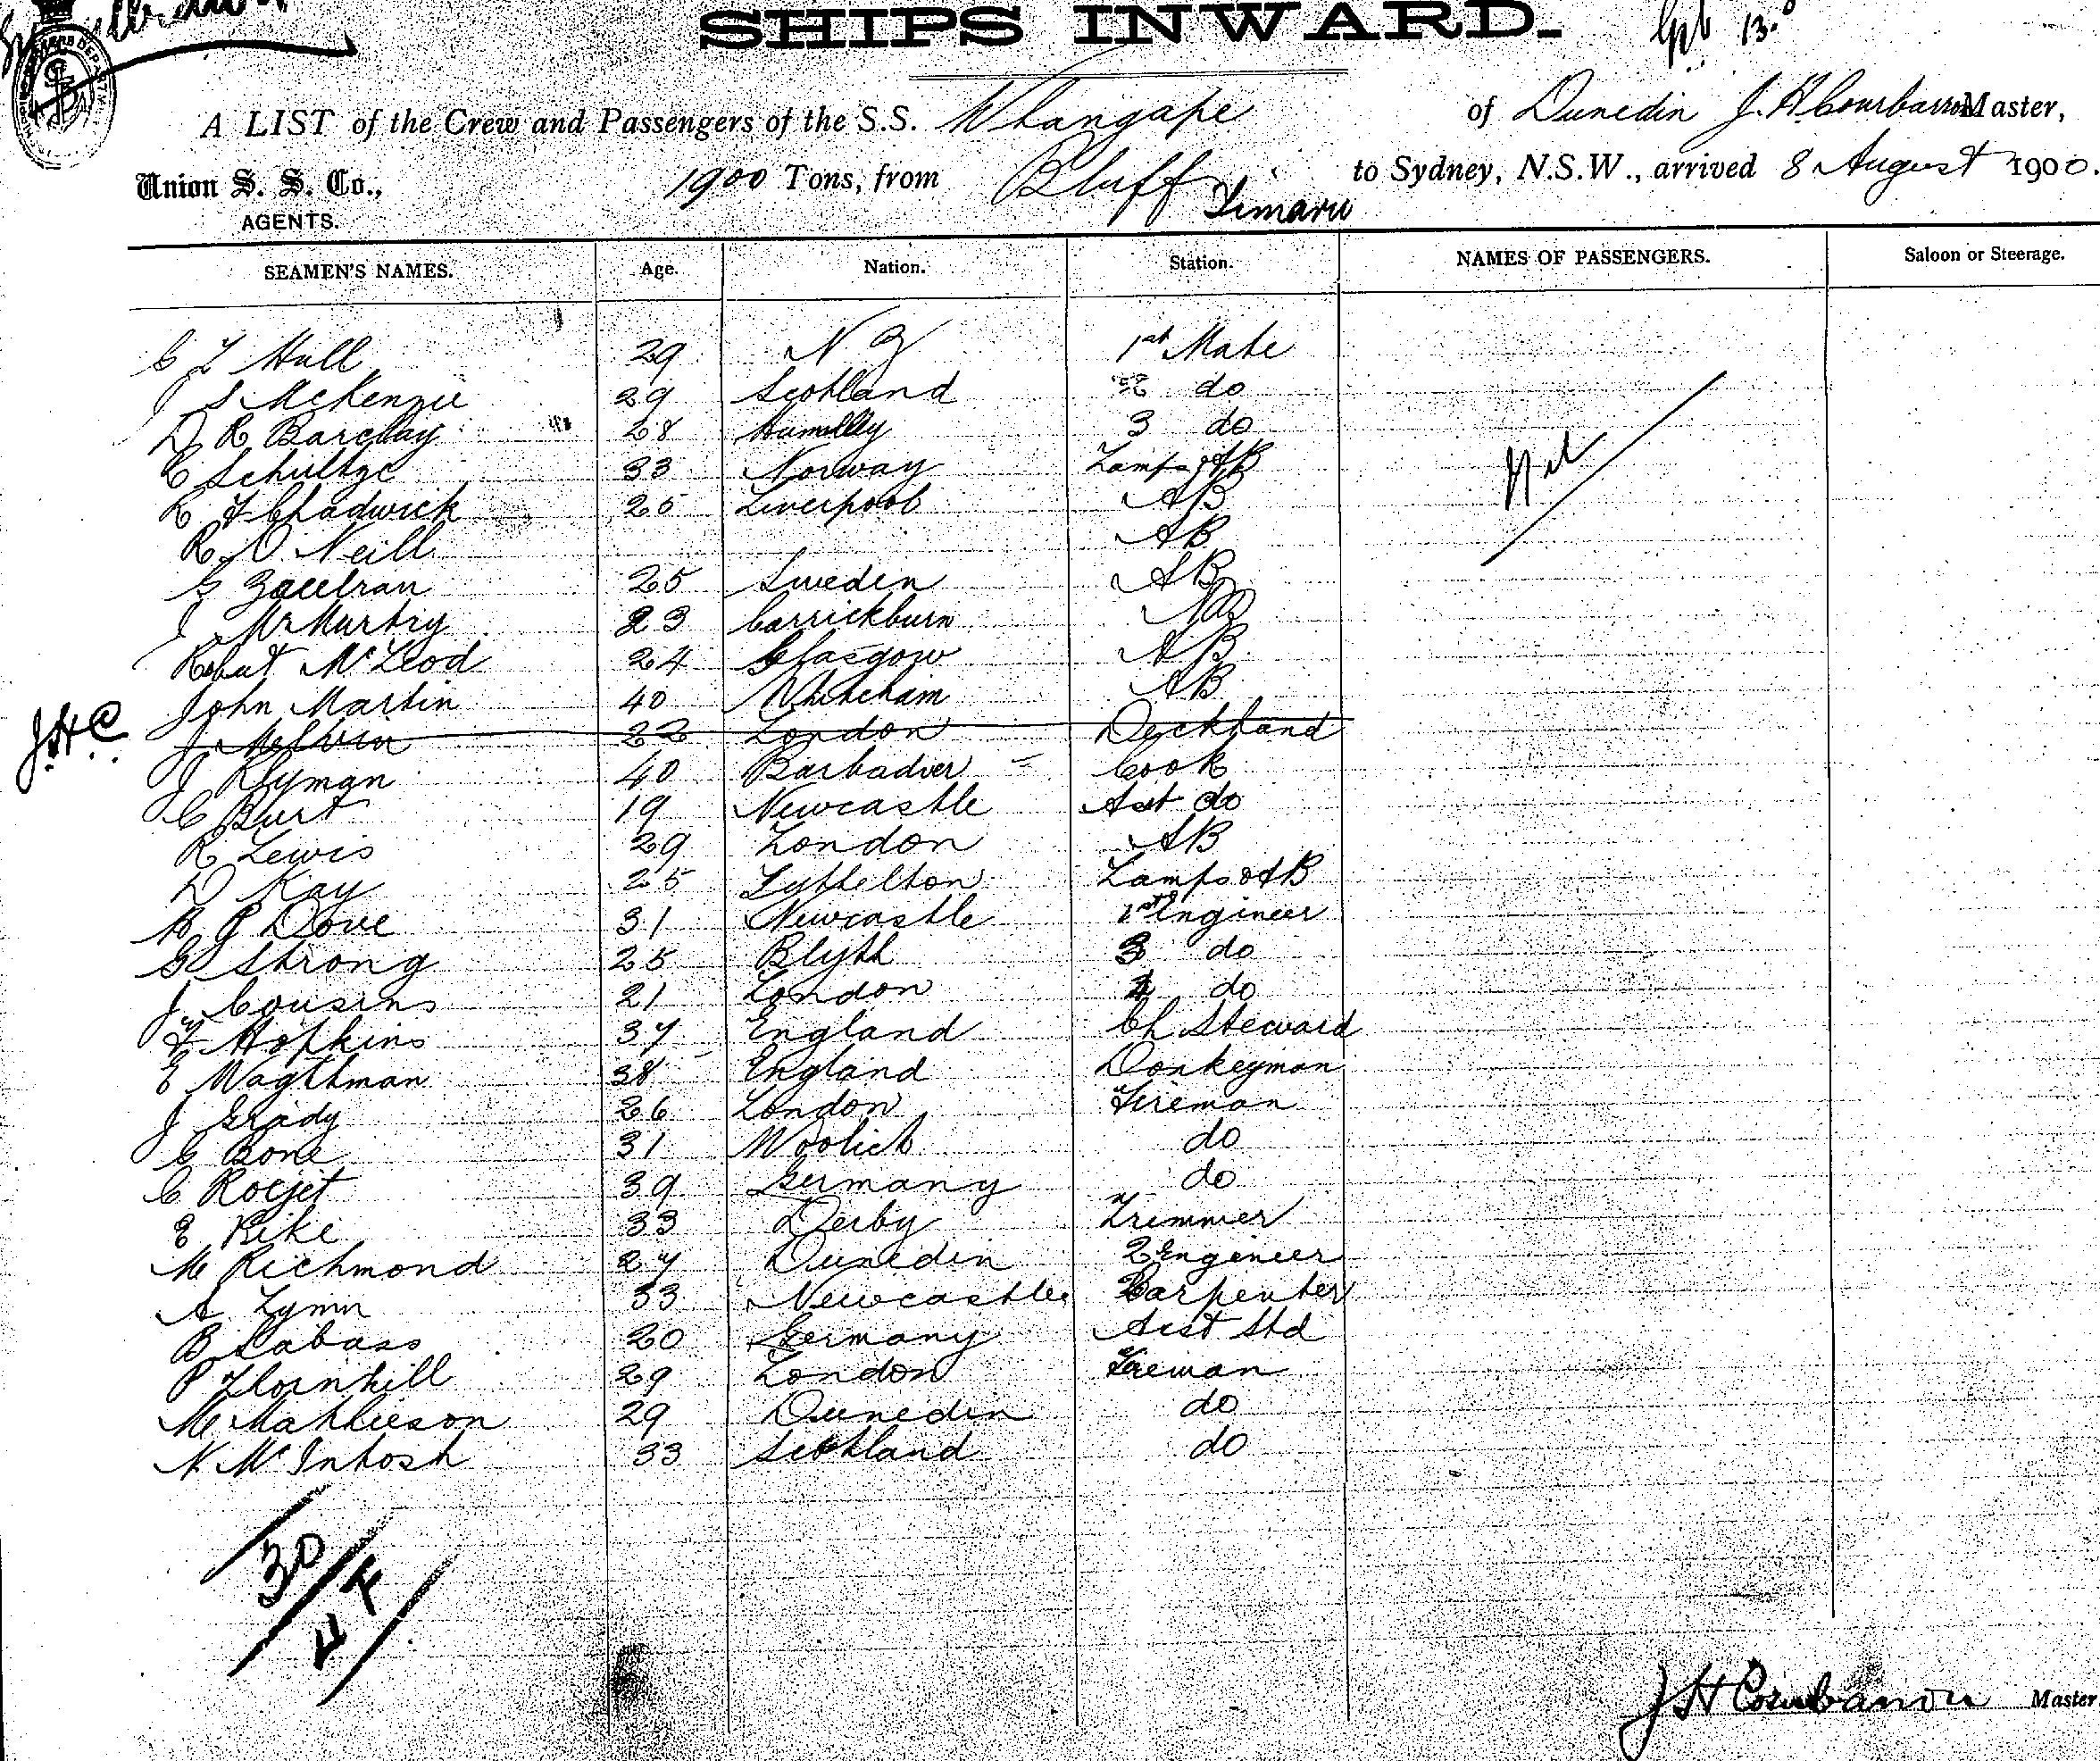 SHIPS INWARD.
A LIST of the Crew and Passengers of the S.S. Whangape of Dunedin J. H Master,
Union S. S. Co., 1900 Tons, from Bluff Timaru to Sydney, N.S.W., arrived 8 August 1900.
AGENTS.
SEAMEN'S NAMES. Age. Nation. Station. NAMES OF PASSENGERS. Saloon or Steerage.
Hull 29 N Z 1st Mate
J S McKenzie 29 Scotland 2 do
D R Barclay 28 3 do
C Schultze 33 Norway Lamps & AB
R F Chadwick 25 Liverpool AB
Nil
R. O. Neill AB
G 25 Sweden AB
J McMurtry 23 Carrickburn AB
Robut McLeod 24 Glasgow AB
John Martin 40 AB
JHC
J Melvin 22 London Deckhand
J Ryman 40 Cook
C Burt 19 Newcastle Asst do
R Lewis 29 London AB
D Kay 25 Lyttelton Lamps & AB
P Dove 31 Newcastle 1st Engineer
G Strong 25 Blyth 3 do
J. Cousins 21 London do
F Hopkins 37 England Ch Steward
E Wagthman 38 England Donkeyman
J Grady 26 London Fireman
C Bone 31 Woolich do
C Rocjet 39 Germany do
E Rike 33 Derby Trimmer
M Richmond 27 Dunedin 2 Engineer
A Lymn 33 Newcastle Carpenter
B Labass 20 Germany Asst Std
P Thornhill 29 London Fireman
M Mathieson 29 Dunedin do
N McIntosh 33 Scotland do
30
4 F
J H Master